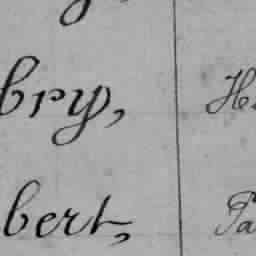 bry, H
bert, Pa